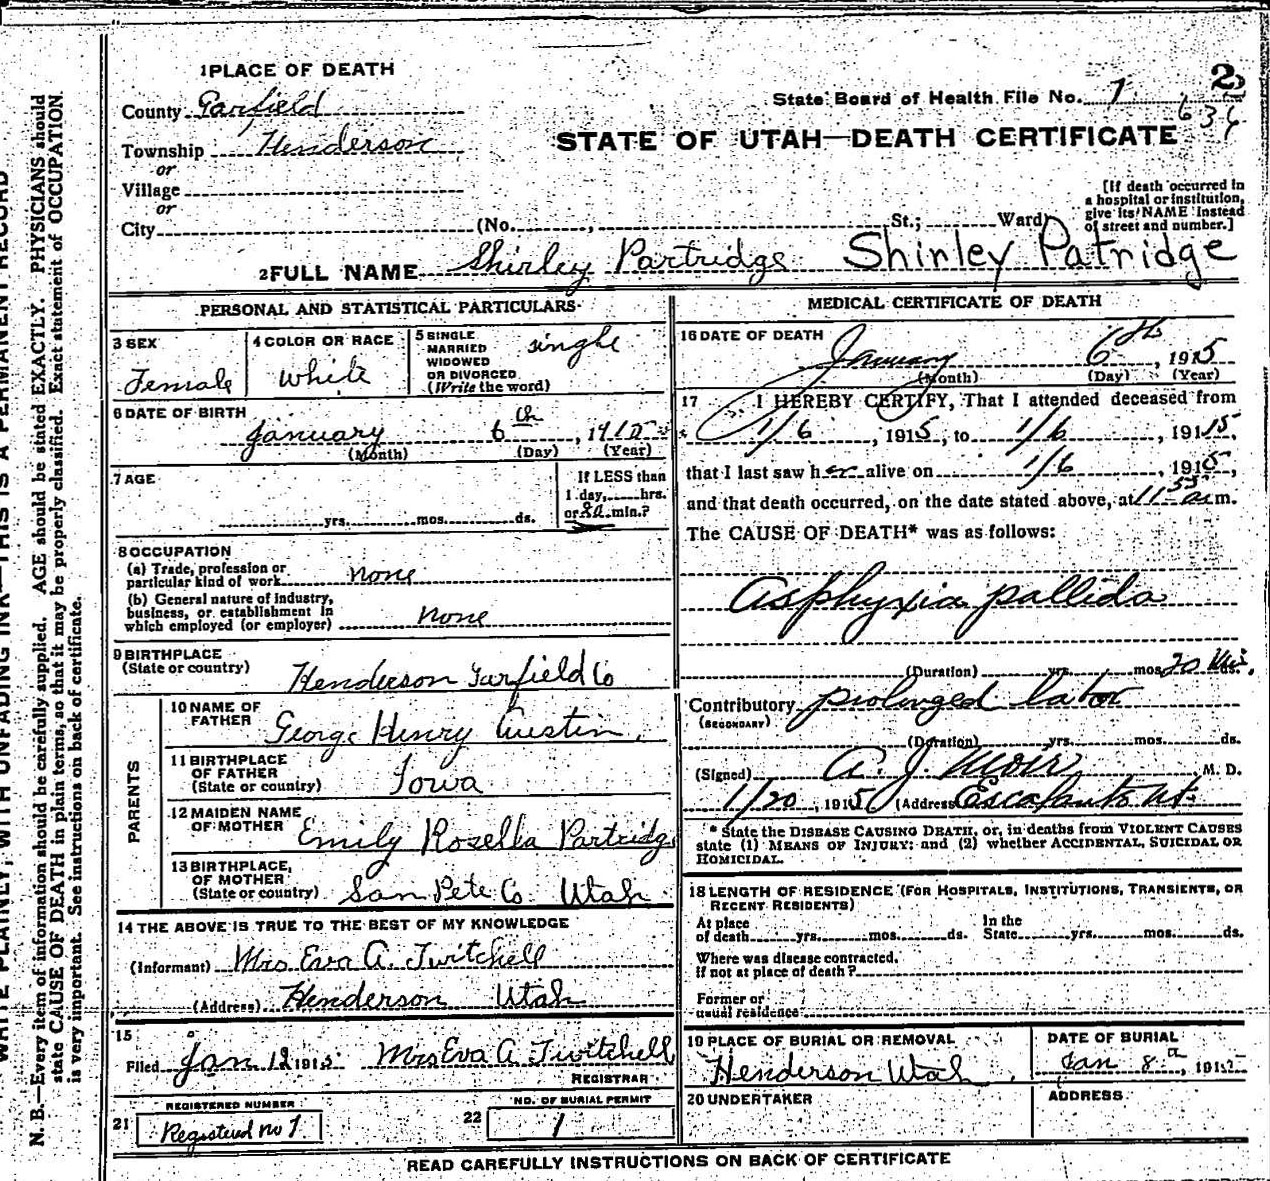 1 PLACE OF DEATH
County Garfield
Township Henderson
or
Village
or
City (No. , St.; Ward)
State Board of Health File No. 7
2
636
STATE OF UTAH—DEATH CERTIFICATE
[If death occurred in
a hospital or institution,
give its NAME instead
of street and number.]
2 FULL NAME Shirley Partridge Shirley Patridge
PERSONAL AND STATISTICAL PARTICULARS
3 SEX
Female
4 COLOR OR RACE
White
5 SINGLE
MARRIED
WIDOWED
OR DIVORCED
(Write the word)
single
6 DATE OF BIRTH
January 6th, 1915
(Month) (Day) (Year)
7 AGE
yrs. mos. ds.
If LESS than
1 day, hrs.
or 20 min.?
8 OCCUPATION
(a) Trade, profession or
particular kind of work none
(b) General nature of industry,
business, or establishment in
which employed (or employer) none
9 BIRTHPLACE
(State or country) Henderson Garfield Co
PARENTS
10 NAME OF
FATHER George Henry Austin
11 BIRTHPLACE
OF FATHER
(State or country) Iowa
12 MAIDEN NAME
OF MOTHER Emily Rosella Partridge
13 BIRTHPLACE,
OF MOTHER
(State or country) San Pete Co. Utah
14 THE ABOVE IS TRUE TO THE BEST OF MY KNOWLEDGE
(Informant) Mrs Eva A. Twitchell
(Address) Henderson Utah
15
Filed Jan 12 1915 Mrs Eva A Twitchell
REGISTRAR
REGISTERED NUMBER
21 Registered no 1
NO. OF BURIAL PERMIT
22 1
MEDICAL CERTIFICATE OF DEATH
16 DATE OF DEATH
January 6th, 1915
(Month) (Day) (Year)
17 I HEREBY CERTIFY, That I attended deceased from
1/6, 1915, to 1/6, 1915,
that I last saw her alive on 1/6, 1915,
and that death occurred, on the date stated above, at 11 55 a.m.
The CAUSE OF DEATH* was as follows:
Asphyxia pallida
(Duration) yrs. mos. 20 Min. ds.
Contributory prolonged labor
(SECONDARY)
(Duration) yrs. mos. ds.
(Signed) A. J. Moir M. D.
1/20, 1915 (Address) Escalante Ut.
* State the DISEASE CAUSING DEATH, or, in deaths from VIOLENT CAUSES
state (1) MEANS OF INJURY; and (2) whether ACCIDENTAL, SUICIDAL OR
HOMICIDAL.
18 LENGTH OF RESIDENCE (FOR HOSPITALS, INSTITUTIONS, TRANSIENTS, OR
RECENT RESIDENTS)
At place
of death yrs. mos. ds.
In the
State yrs. mos. ds.
Where was disease contracted,
if not at place of death?
Former or
usual residence
19 PLACE OF BURIAL OR REMOVAL
Henderson Utah
DATE OF BURIAL
Jan 8th, 1915
20 UNDERTAKER
ADDRESS
READ CAREFULLY INSTRUCTIONS ON BACK OF CERTIFICATE
WRITE PLAINLY, WITH UNFADING INK—THIS IS A PERMANENT RECORD
N. B.—Every item of information should be carefully supplied. AGE should be stated EXACTLY. PHYSICIANS should
state CAUSE OF DEATH in plain terms, so that it may be properly classified. Exact statement of OCCUPATION
is very important. See instructions on back of certificate.